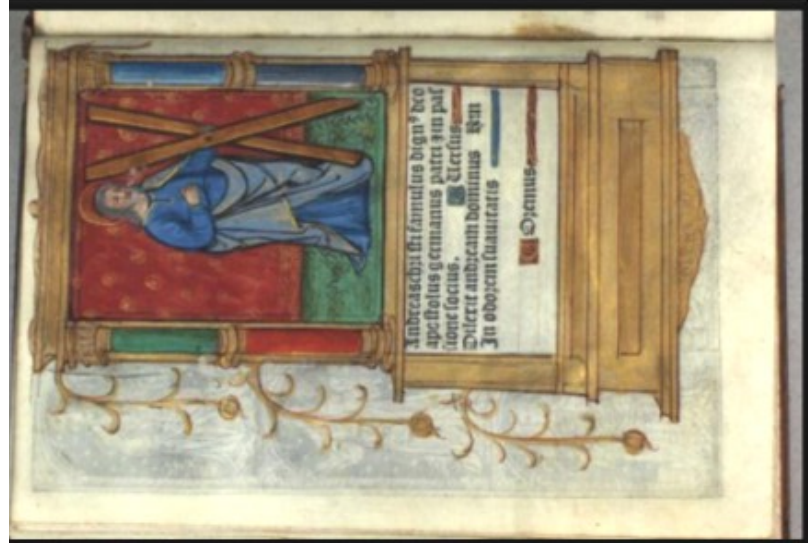 Andreas chri sti famulus dignꝰ deo
apostolus germanus patri in pas
sione socius. Versus
Dilexit andream dominus
In odorem suavitatis
Oremus